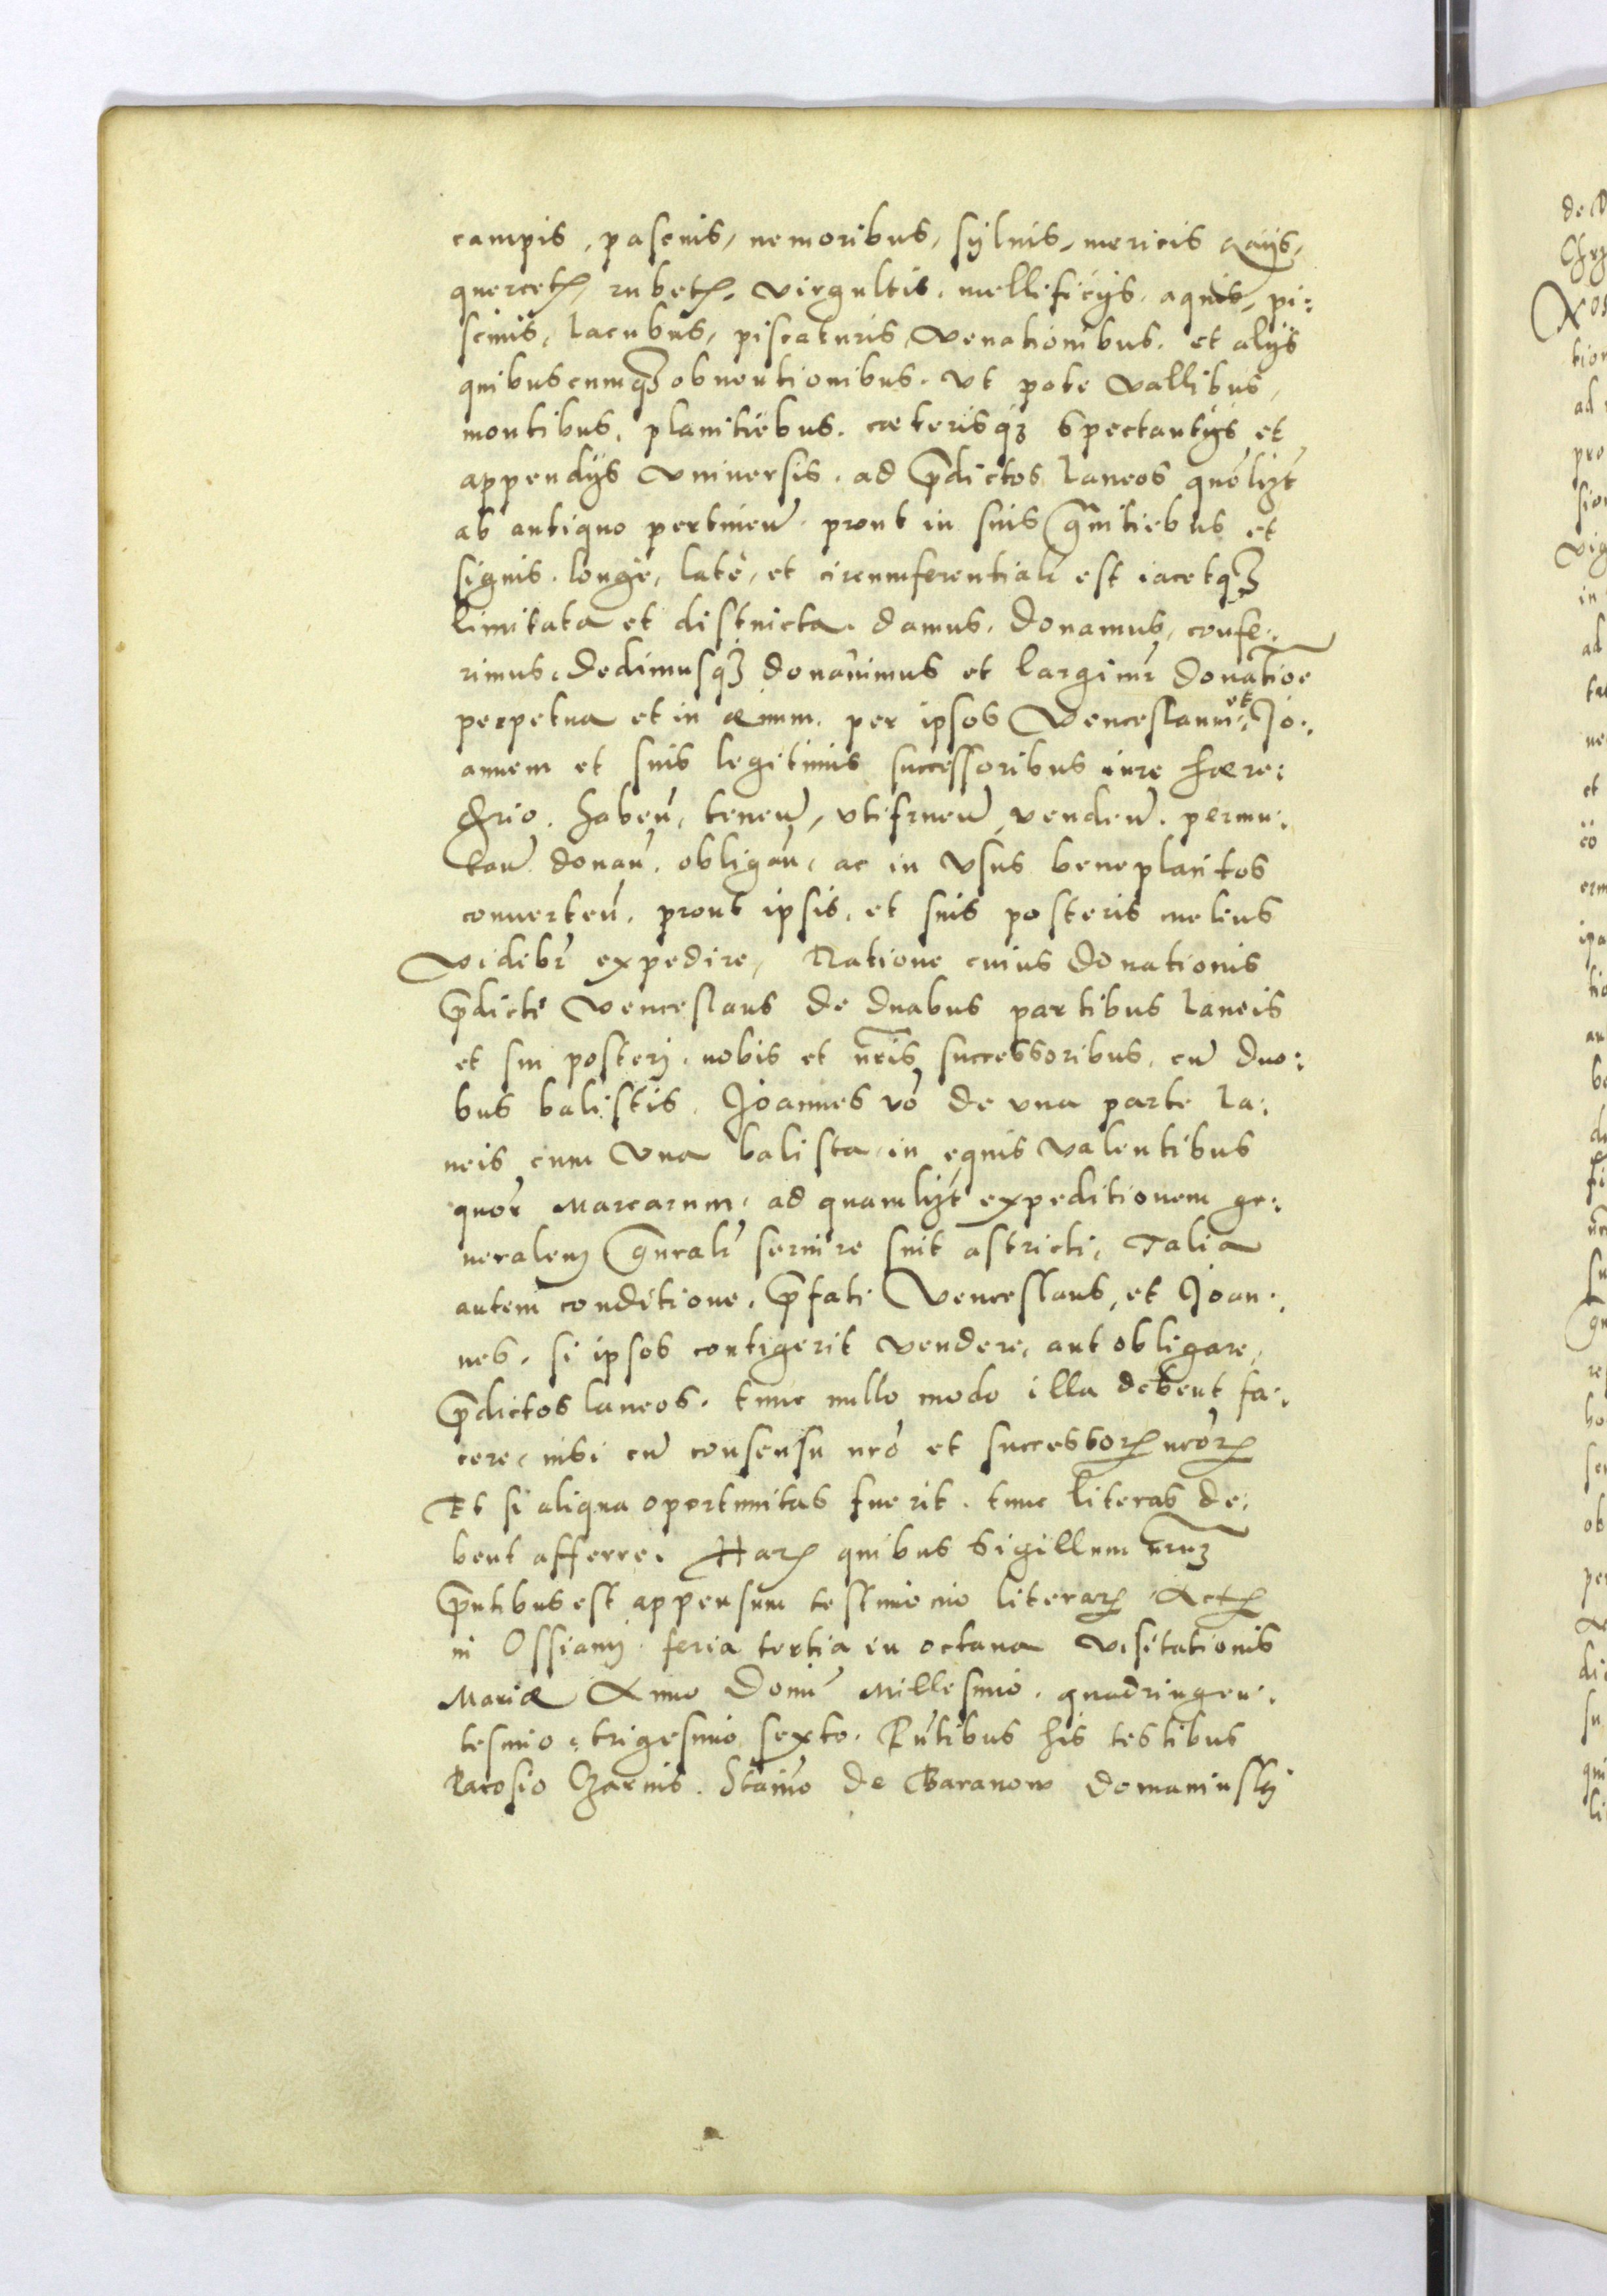 campis, pascuis, nemoribus, syluis, mericis gaijs,
quercetꝝ, rubetꝝ, virgultis, mellificijs, aquis, pi:
scinis, lacubus, piscaturis, venationibus, et alijs
quibuscumqꝫ obuentionibus. vt pote vallibus,
montibus, planitiebus, cæterisqꝫ spectantijs et
appendijs vniuersis, ad p̄dictos laneos quōlizt
ab antiquo pertineñ. prout in suis gnitiebus et
signis. longè, latè, et circumferentialr̄ est iacetqꝫ
limitata et districta. damus, donamus, confe:
rimus, dedimusqꝫ donauimus et largimr̄ donat̄ioe
perpetua et in æuum. per ipsos Venceslaum et Jo:
annem et suis legitimis successoribus iure hære:
ḋrio. habeñ, teneñ, vtifrueñ, vendeñ. permu:
tañ donañ. obligañ, ac in vsus beneplacitos
conuerteñ, prout ipsis, et suis posteris melius
videbr̄ expedire, Ratione cuius donationis
p̄dicti Venceslaus de duabus partibus laneis
et sui posterj, nobis et nr̄is successoribus, cū duo:
bus balistis, Joannes vō de vna parte la:
neis cum vna balista in equis valentibus
quor̄ Marcarum, ad quamlizt expeditionem ge:
neralem gnralr̄ seruire sint astricti, Talia
autem conditione, p̄fati Venceslaus, et Joan:
nes, si ipsos contigerit vendere, aut obligare,
p̄dictos laneos. tunc nullo modo illa debent fa:
cere, nisi cū consensu nrō et successorꝝ nrōrꝝ
Et si aliqua oportunitas fuerit. tunc literas de:
bent afferre. Harꝝ quibus Sigillum nr̄uꝫ
p̄ntibus est appensum testimonio literarꝝ Actꝝ
in Ossianj feria tertia in octaua Visitationis
Mariæ Anno Domī Millesimo, quadringen:
tesimo, trigesimo sexto. Pn̄tibus his testibus
Racosio Czarnis. Stanō de Baranow Domaniuskj